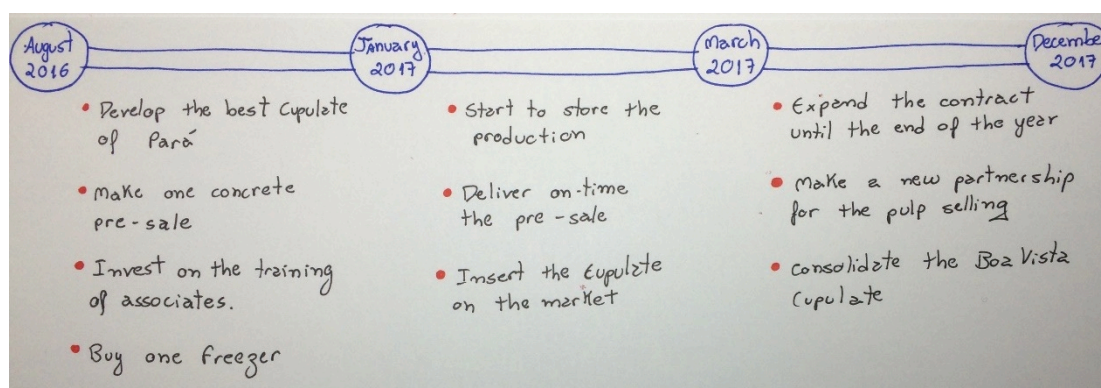 August
2016
January
2017
March
2017
December
2017
• Develop the best Cupulate
of Pará
• Make one concrete
pre-sale
• Invest on the training
of associates.
• Buy one freezer
• Start to store the
production
• Deliver on-time
the pre-sale
• Insert the Cupulate
on the market
• Expand the contract
until the end of the year
• Make a new partnership
for the pulp selling
• Consolidate the Boa Vista
Cupulate